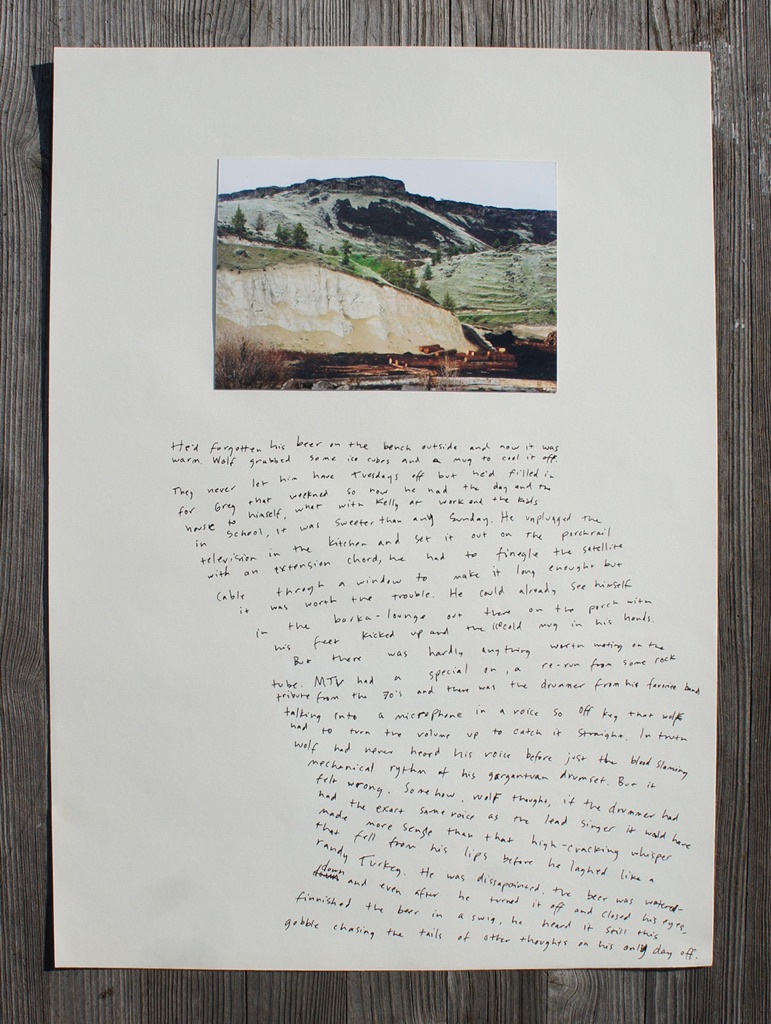 He'd forgotten his beer on the bench outside and now it was
warm. Wolf grabbed some ice cubes and a mug to cool it off.
They never let him have Tuesdays off but he'd filled in
for Greg that weekned so now he had the day and the
house to himself, what with Kelly at work and the kids
in School, it was sweeter than any Sunday. He unplugged the
television in the kitchen and set it out on the porchrail
with an extension chord, he had to finegle the satellite
cable through a window to make it long enought but
it was worth the trouble. He could already see himself
in the barka-lounge out there on the porch with
his feet kicked up and the icecold mug in his hands.
But there was hardly anything worth moting on the
tube. MTV had a special on, a re-run from some rock
tribute from the 70's and there was the drummer from his favorite band
talking into a microphone in a voice so off key that wolf
had to turn the volume up to catch it straight. In truth
Wolf had never heard his voice before just the blood slamming
mechanical rythm of his gargantuan drumset. But it
felt wrong. Somehow, wolf thought, if the drummer had
had the exact same voice as the lead singer it would have
made more sense than that high-cracking whisper
that fell from his lips before he laghed like a
randy Turkey. He was dissapointed, the beer was watered-
down and even after he turned it off and closed his eyes,
finnished the beer in a swig, he heard it still this
gobble chasing the tails of other thoughts on his only day off.